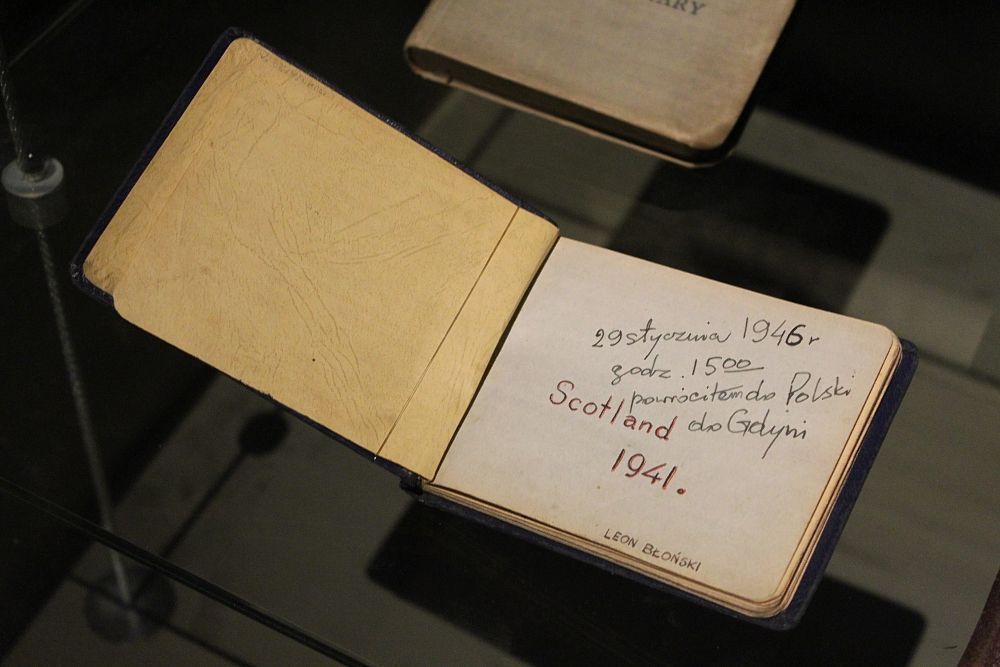 ARY
29 stycznia 1946 r
godz. 15 00
powróciłem do Polski
Scotland do Gdyni
1941.
LEON BŁOŃSKI